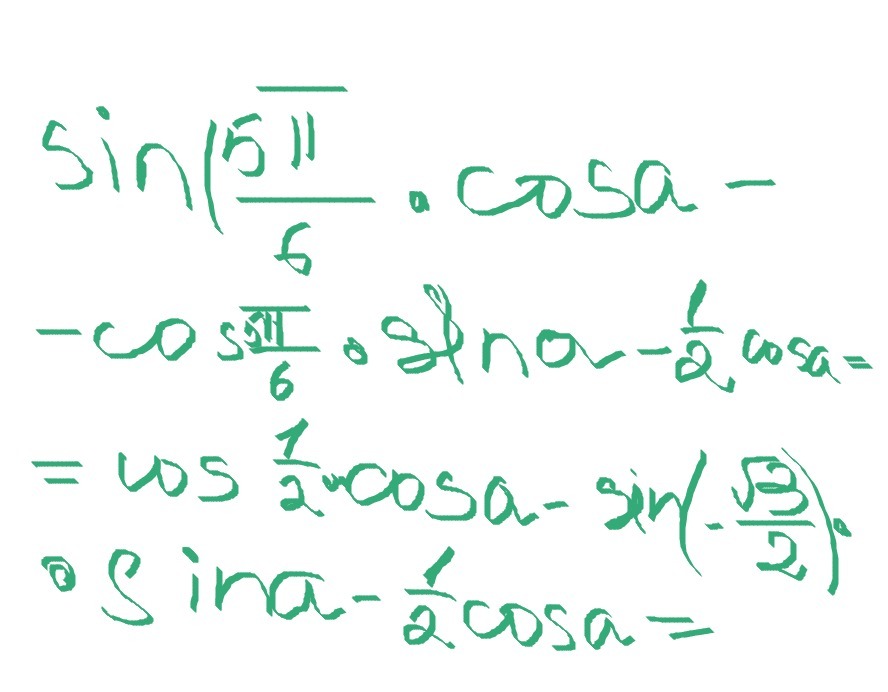 sin(5π/6 · cosa −
− cos 5π/6 · sina − 1/2 cosa =
= cos 1/2 · cosa − sin(−√3/2) ·
· sina − 1/2 cosa =